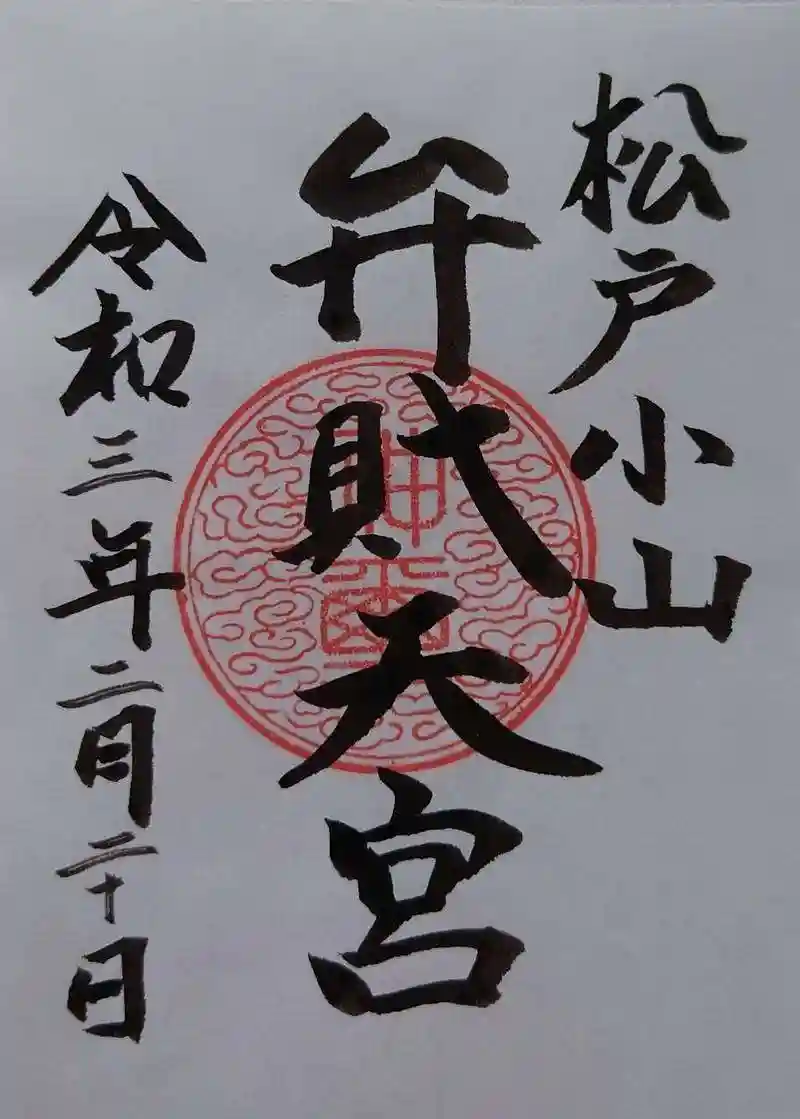 松戸小山
弁財天宮
令和三年二月二十日